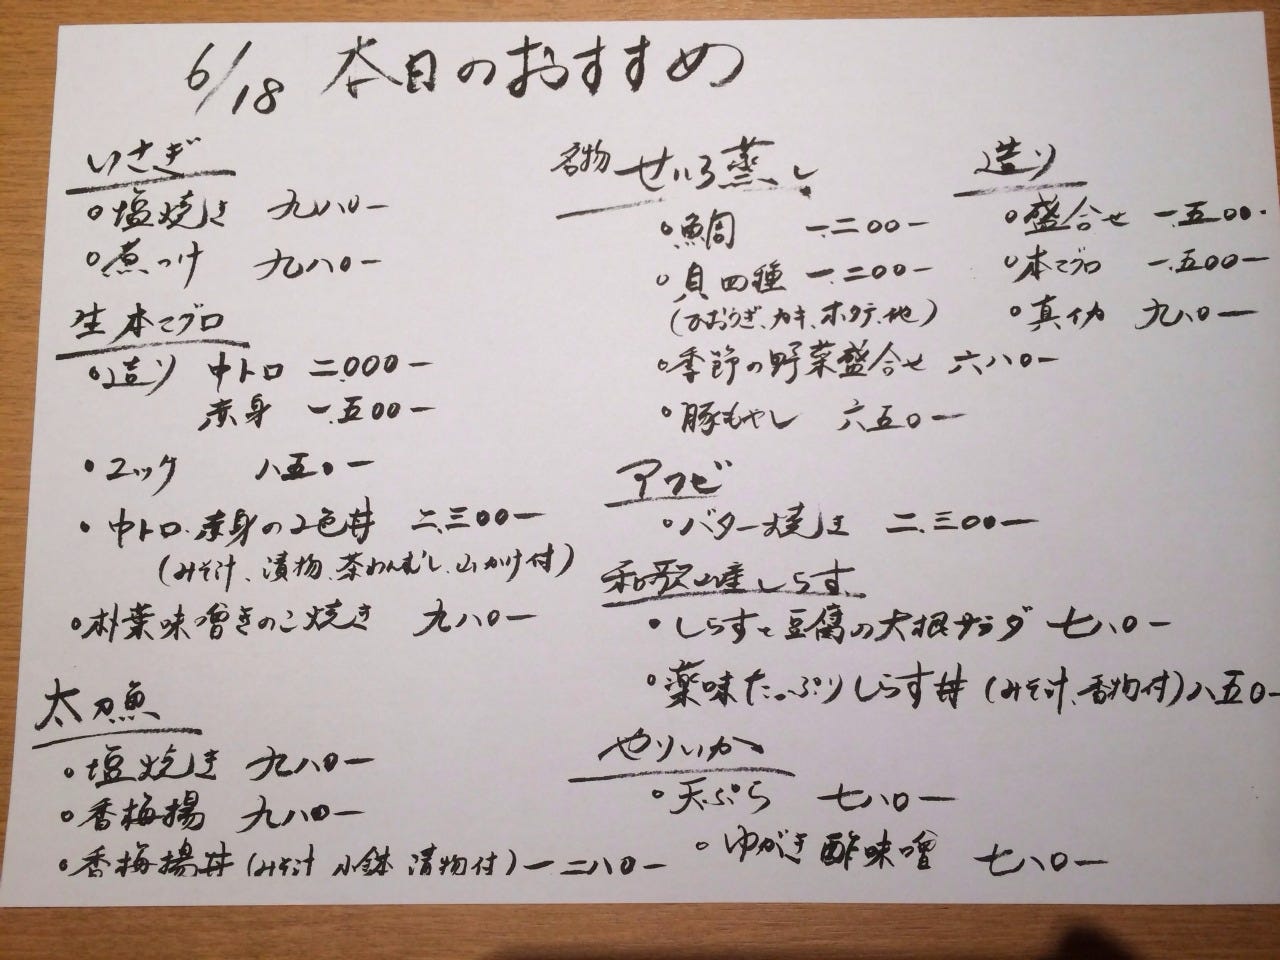 6/18 本日のおすすめ
いさぎ
・塩焼き 九八〇ー
・煮つけ 九八〇ー
生本マグロ
・造り 中トロ 二.〇〇〇ー
赤身 一.五〇〇ー
・ユッケ 八五〇ー
・中トロ・赤身の2色丼 二.三〇〇ー
(みそ汁、漬物、茶わんむし、山かけ付)
・朴葉味噌きのこ焼き 九八〇ー
太刀魚
・塩焼き 九八〇ー
・香梅揚 九八〇ー
・香梅揚丼(みそ汁 小鉢 漬物付) 一二八〇ー
名物 せいろ蒸し
・鯛 一.二〇〇ー
・貝四種 一.二〇〇ー
(ひおうぎ、カキ、ホタテ、地)
・季節の野菜盛合せ 六八〇ー
・豚もやし 六五〇ー
アワビ
・バター焼き 二.三〇〇ー
和歌山産しらす
・しらすと豆腐の大根サラダ 七八〇ー
・薬味たっぷりしらす丼(みそ汁、香物付)八五〇ー
やりいか
・天ぷら 七八〇ー
・ゆがき酢味噌 七八〇ー
造り
・盛合せ 一.五〇〇ー
・本マグロ 一.五〇〇ー
・真イカ 九八〇ー